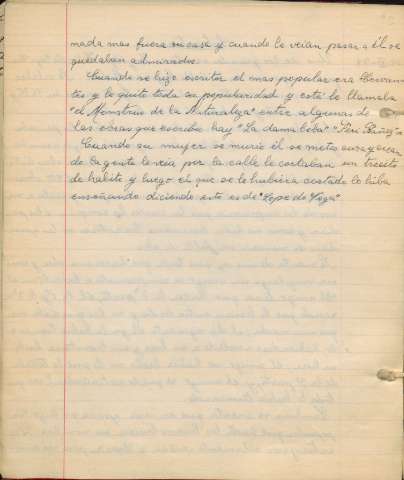 nada mas fuera su casa y cuando le veian pasar a él se
quedaban admirados.
Cuando se hizo escritor el mas popular era Cervan-
tes y le quitó toda su popularidad y este le llamaba
"el Monstruo de la Naturaliza" entre algunas de
las obras que escribio hay "La dama boba"
Cuando su mujer se murió él se metio cura y cuan
do la gente le veia por la calle le cortaban un trocito
de habito y luego el que se lo hubiera cortado lo iba
enseñando diciendo esto es de "Lope de Vega"